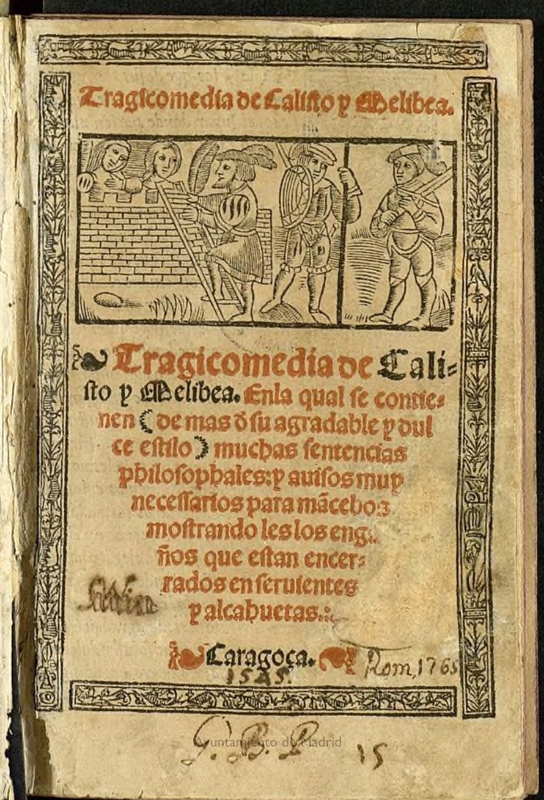 Tragicomedia de Calisto y Melibea.
Tragicomedia de Cali-
sto y Melibea. Enla qual se contie-
nen (de mas d̄ su agradable y dul
ce estilo) muchas sentencias
philosophales: y auisos muy
necessarios para mācebos
mostrando les los enga
ños que estan encer-
rados en seruientes
y alcahuetas.
Caragoça.
1545. Rom, 1765
G. B. P 15
Ayuntamiento de Madrid